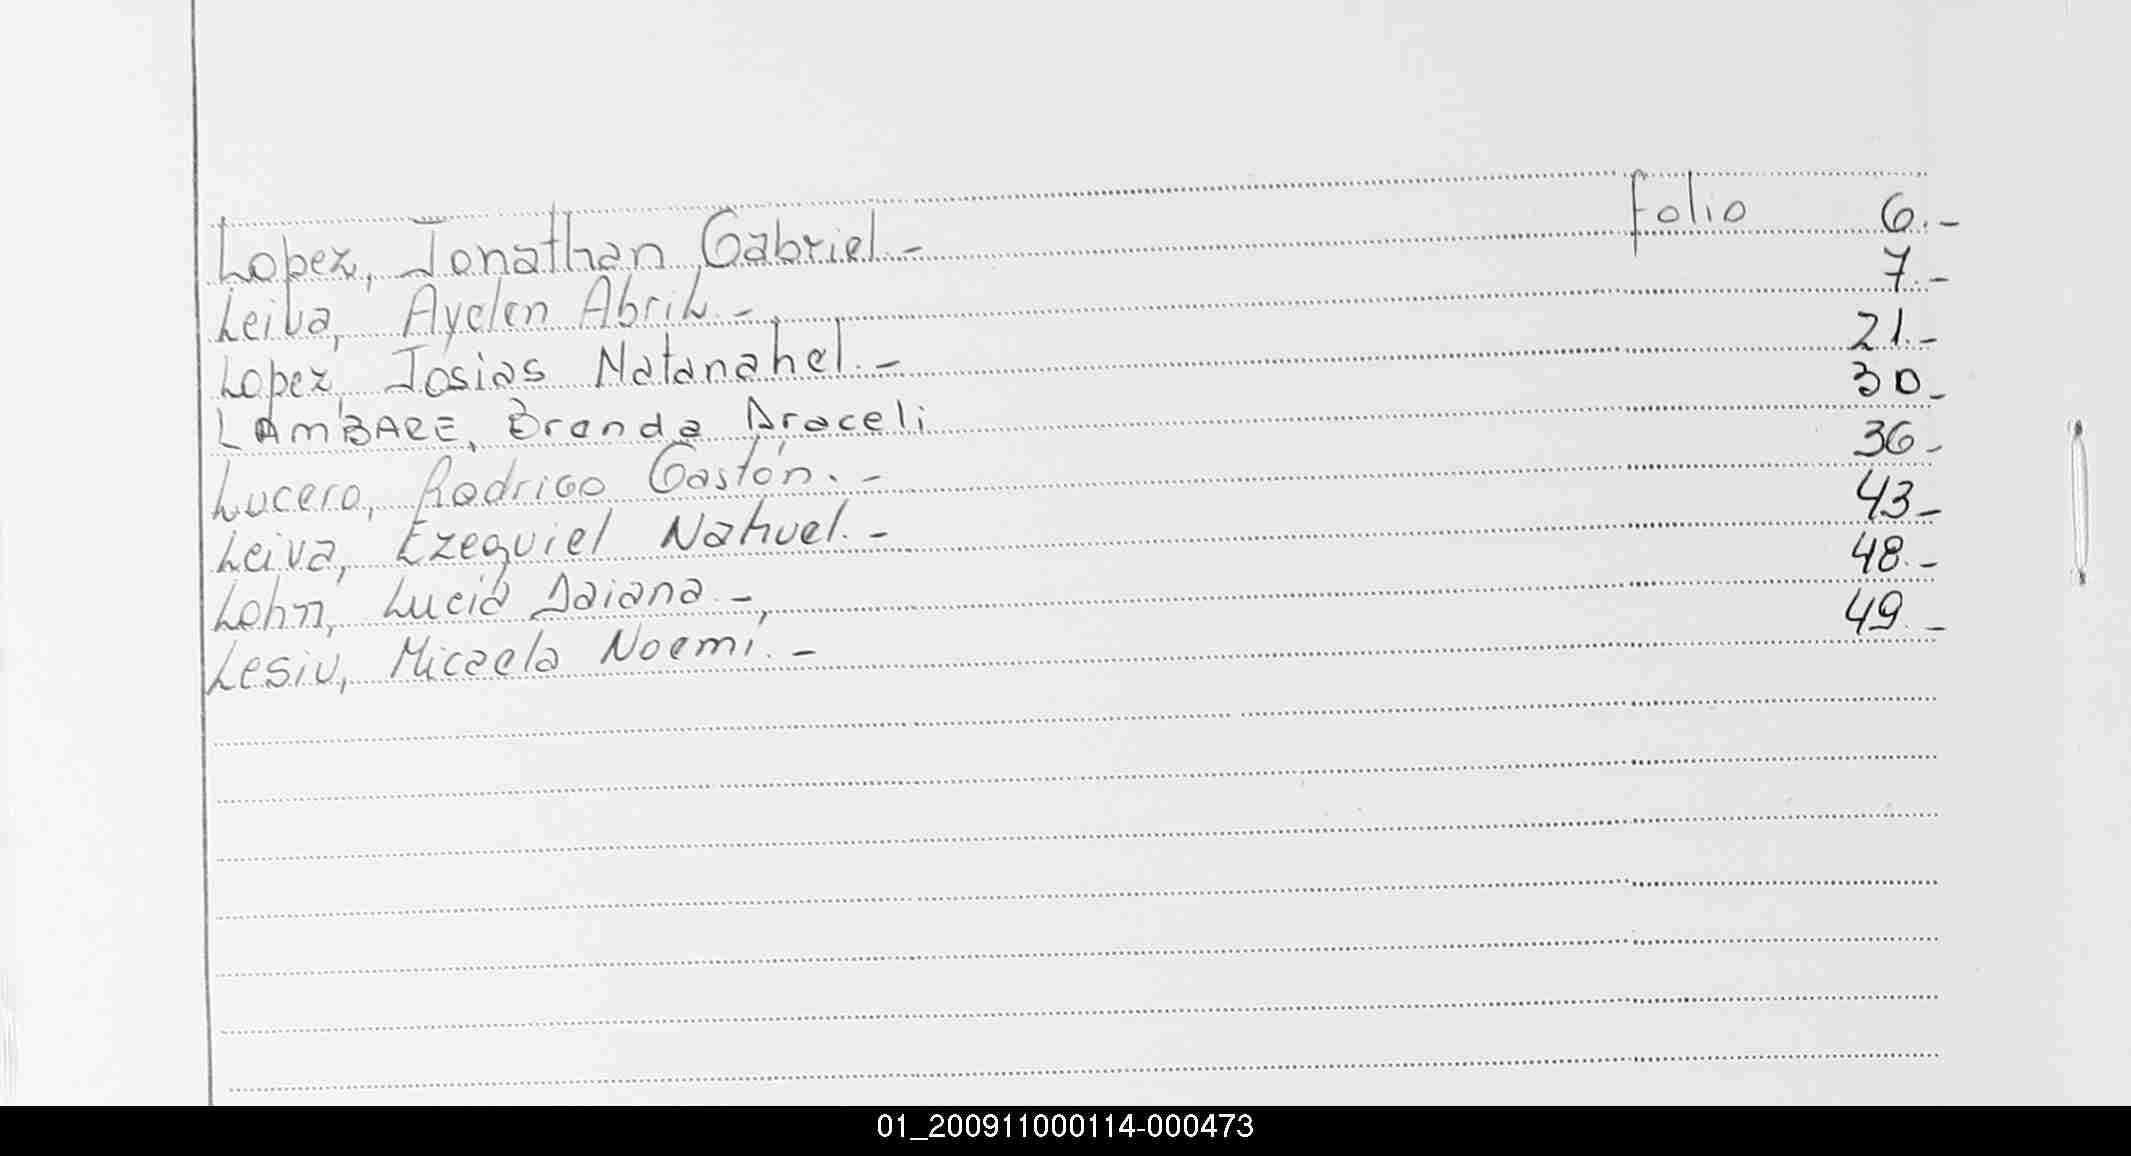 Lopez, Jonathan Gabriel.- Folio 6.-
Leiva, Ayelen Abril.- 7.-
Lopez, Josias Natanahel.- 21.-
LAMBARE, Brenda Araceli 30-
Lucero, Rodrigo Gastón.- 36-
Leiva, Ezequiel Nahuel.- 43-
Lohn, Lucia Daiana.- 48.-
Lesiu, Micaela Noemí.- 49.-
01_200911000114-000473